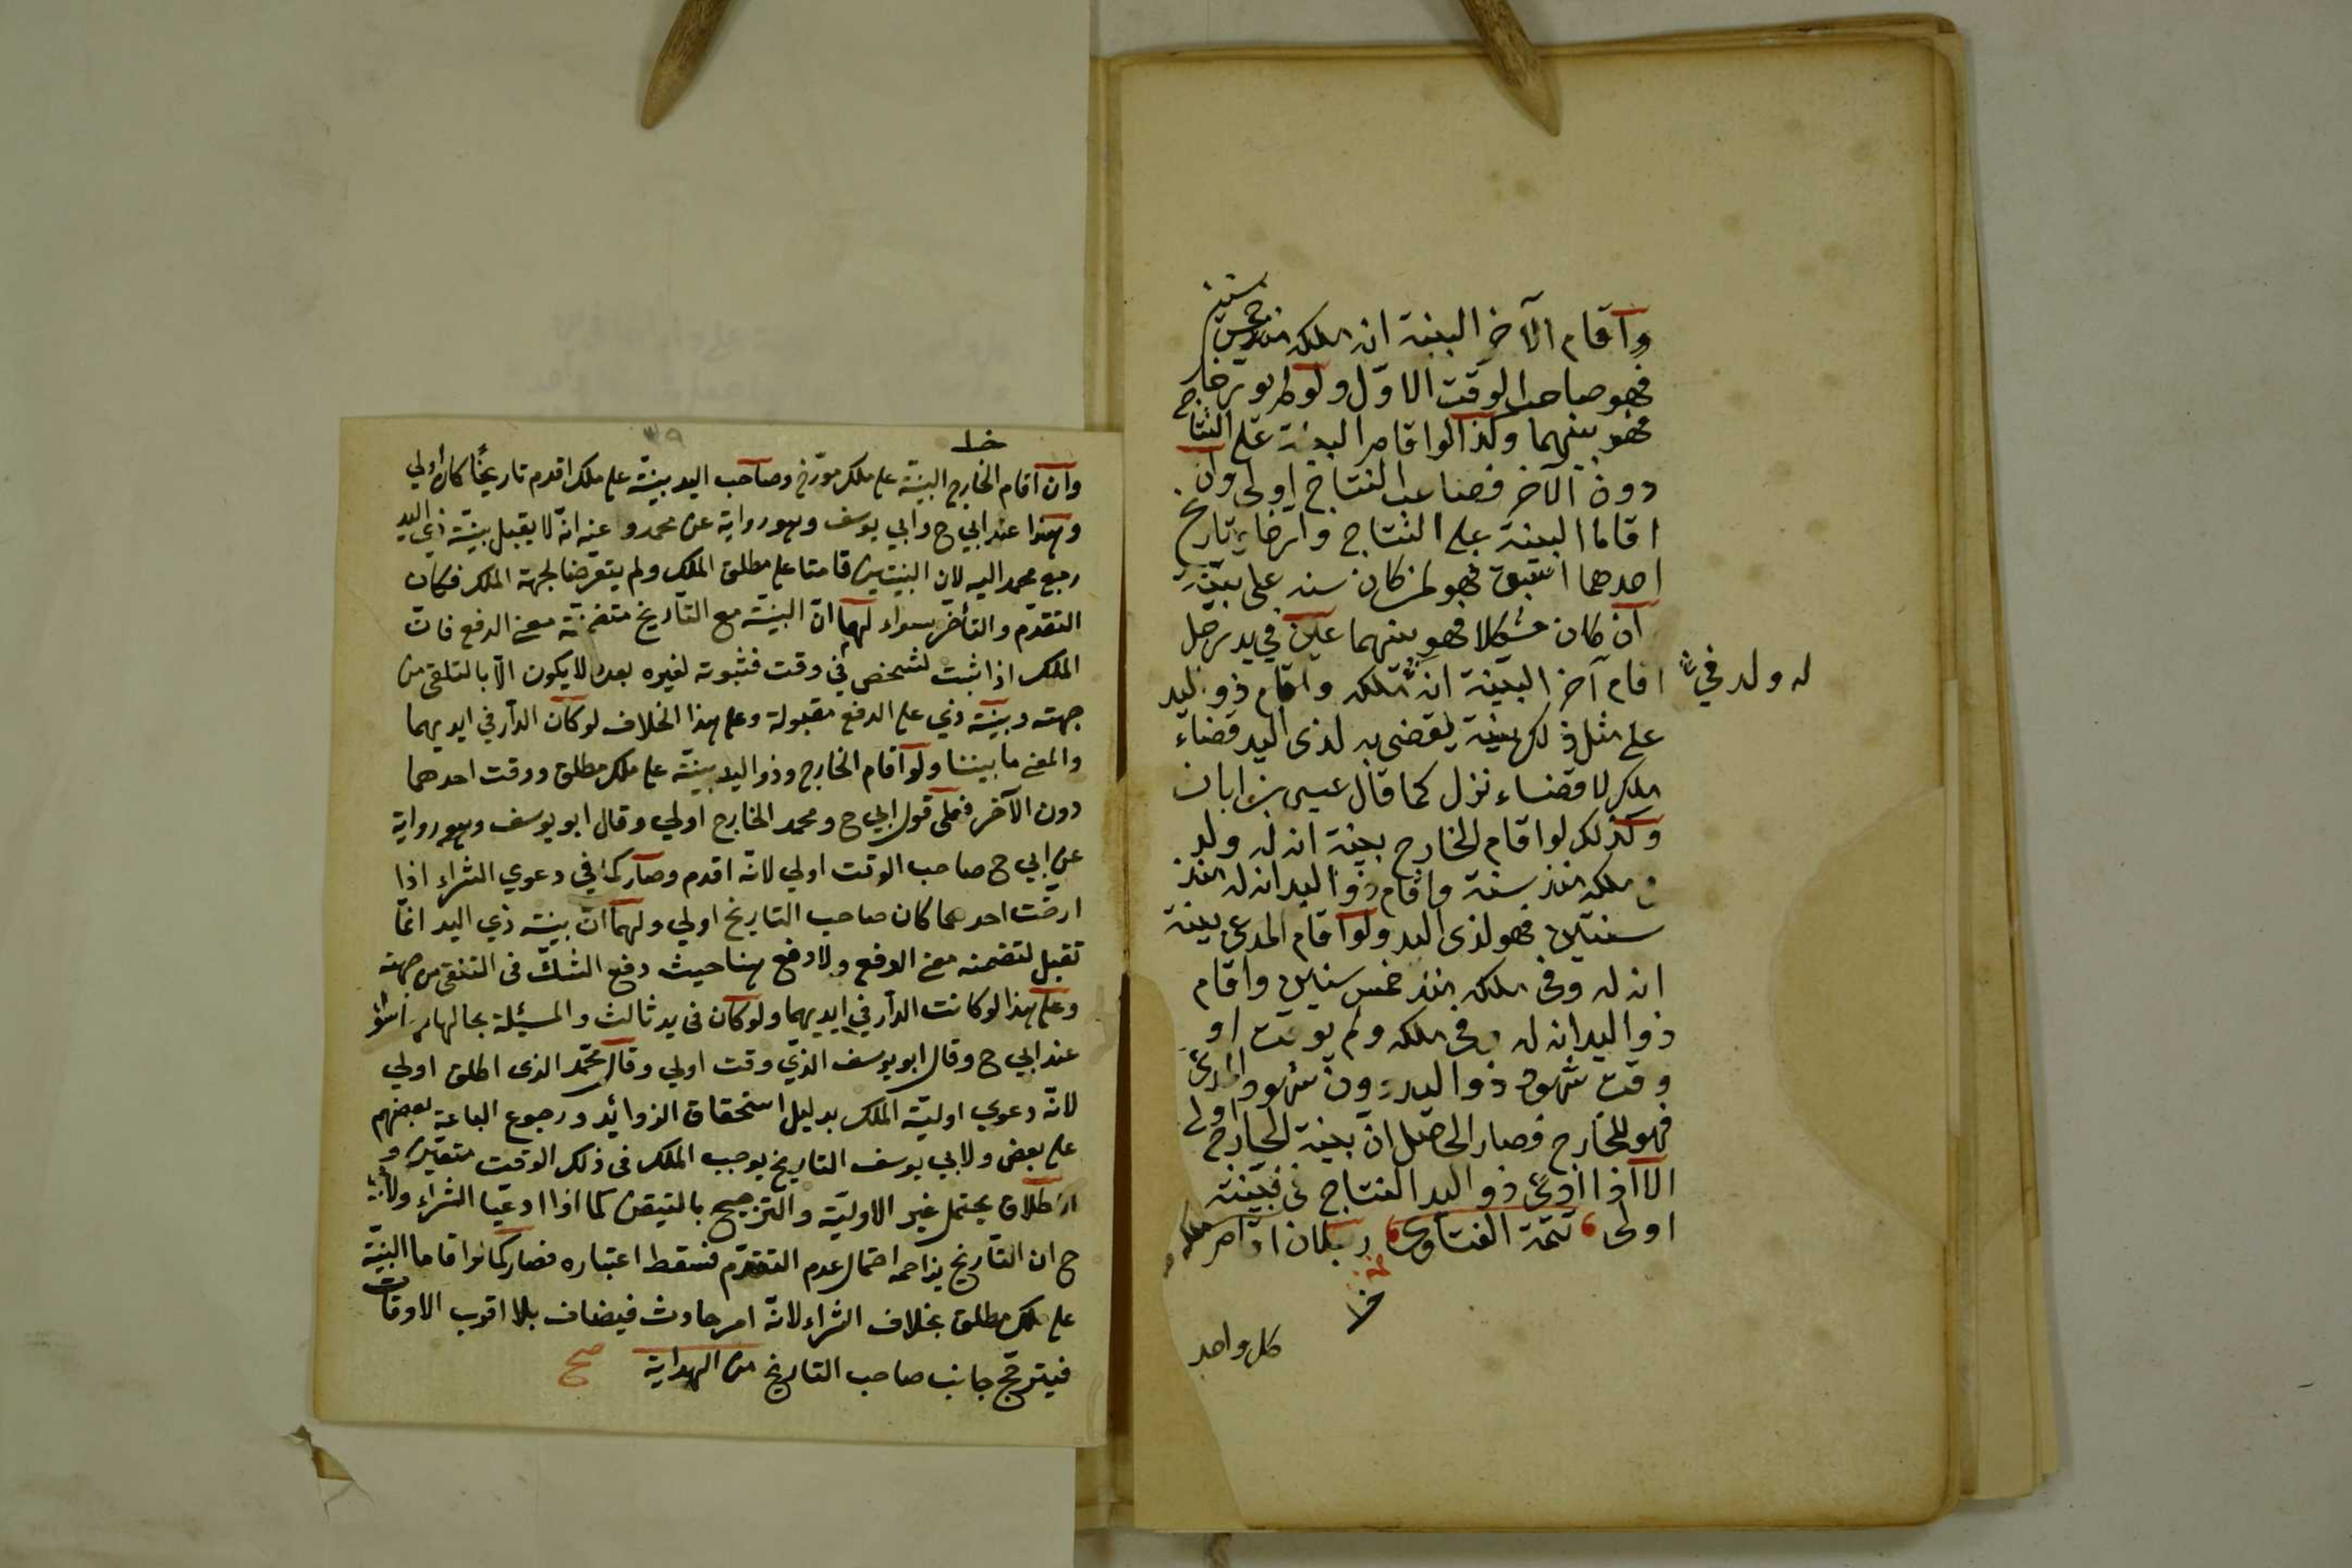 وأقام الآخر البينة انه ملكه منذ خمس سنين
فهو صاحب الوقت الاول ولو لم يورخا
فهو بينهما وكذا لو اقاما البينة على النتاج
دون الآخر فصاحب النتاج اولى وان
اقاما البينة على النتاج وارخا وتاريخ
احدهما اسبق فهو لمن كان سنه على بينته
ان كان مشكلا فهو بينهما عين في يد رجل
اقام آخر البينة انه ملكه واقام ذو اليد
له ولد في
على مثل ذلك بينة يقضى به لذى اليد قضاء
ملك لا قضاء نزل كما قال عيسى بن ابان
وكذلك لو اقام الخارج بينة انه له ولد
في ملكه منذ سنة واقام ذو اليد انه له منذ
سنتين فهو لذى اليد ولو اقام المدعى بينة
انه له وفى ملكه منذ خمس سنين واقام
ذو اليد انه له وفى ملكه ولم يوقت او
وقت شهود ذو اليد دون شهود المدعى
فهو للخارج فصار الحاصل ان بينة الخارج اولى
الا اذا ادعى ذو اليد النتاج فبينته
اولى تتمة الفتاوى
كل واحد
وان اقام الخارج البينة على ملك مورخ وصاحب اليد بينة على ملك اقدم تاريخا كان اولي
وهذا عند ابي ح وابي يوسف وهو رواية عن محمد وعنه انه لا يقبل بينة ذي اليد
رجع محمد اليه لان البينتين قامتا على مطلق الملك ولم يتعرضا لجهة الملك فكان
التقدم والتأخر سواء لهما ان البينة مع التاريخ متضمنة معنى الدفع فان
الملك اذا ثبت لشخص في وقت فثبوته لغيره بعده لا يكون الا بالتلقى من
جهته وبينة ذي على الدفع مقبولة وعلى هذا الخلاف لو كان الدار في ايديهما
والمعنى ما بيننا ولو اقام الخارج وذو اليد بينة على ملك مطلق ووقت احدهما
دون الآخر فعلى قول ابي ح ومحمد الخارج اولي وقال ابو يوسف وهو رواية
عن ابي ح صاحب الوقت اولي لانه اقدم وصار كما في دعوي الشراء اذا
ارخت احدهما كان صاحب التاريخ اولي ولهما ان بينة ذي اليد انما
تقبل لتضمنه معنى الدفع ولا دفع هنا حيث دفع الشك في التلقى من جهته
وعلى هذا لو كانت الدار في ايديهما ولو كان في يد ثالث والمسئلة بحالها
عند ابي ح وقال ابو يوسف الذي وقت اولي وقال محمد الذى اطلق اولي
لانه دعوي اولية الملك بدليل استحقاق الزوائد ورجوع الباعة بعضهم
على بعض ولابي يوسف التاريخ يوجب الملك في ذلك الوقت متيقن و
الاطلاق يحتمل غير الاولية والترجيح بالتيقن كما اذا ادعيا الشراء ولابي
ح ان التاريخ يزاحمه احتمال عدم التقدم فسقط اعتباره فصار كما لو اقاما البينة
على ملك مطلق بخلاف الشراء لانه امر حادث فيضاف الى اقرب الاوقات
فيترجح جانب صاحب التاريخ من الهداية صح